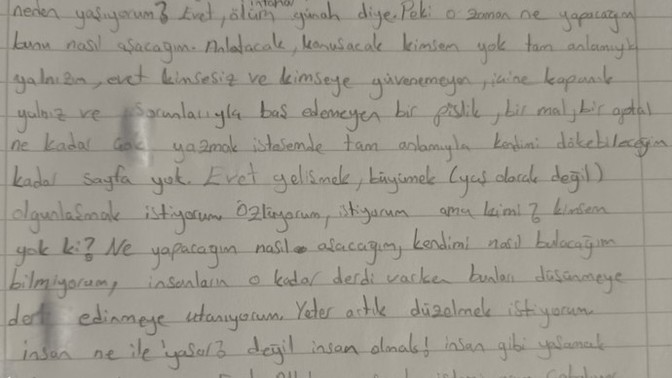 neden yaşıyorum? Evet, intahar ölüm günah diye. Peki o zaman ne yapacağım
bunu nasıl aşacağım. Anlatacak, konuşacak kimsem yok tam anlamıyla
yalnızım, evet kimsesiz ve kimseye güvenemeyen, içine kapanık
yalnız ve sorunlarıyla baş edemeyen bir pislik, bir mal, bir aptal
ne kadar çok yazmak istesemde tam anlamıyla kendimi dökebileceğim
kadar sayfa yok. Evet gelişmek, büyümek (yaş olarak değil)
olgunlaşmak istiyorum. Özlüyorum, istiyorum ama kimi? kimsem
yok ki? Ne yapacağım nasıl aşacağım, kendimi nasıl bulacağım
bilmiyorum, insanların o kadar derdi varken bunları düşünmeye
dert edinmeye utanıyorum. Yeter artık düzelmek istiyorum
insan ne ile yaşar? değil insan olmak! insan gibi yaşamak